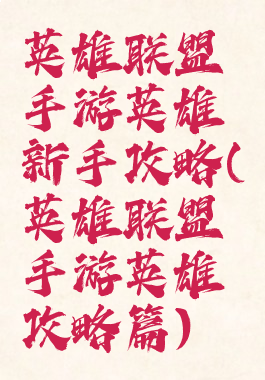 英雄联盟
手游英雄
新手攻略(
英雄联盟
手游英雄
攻略篇)